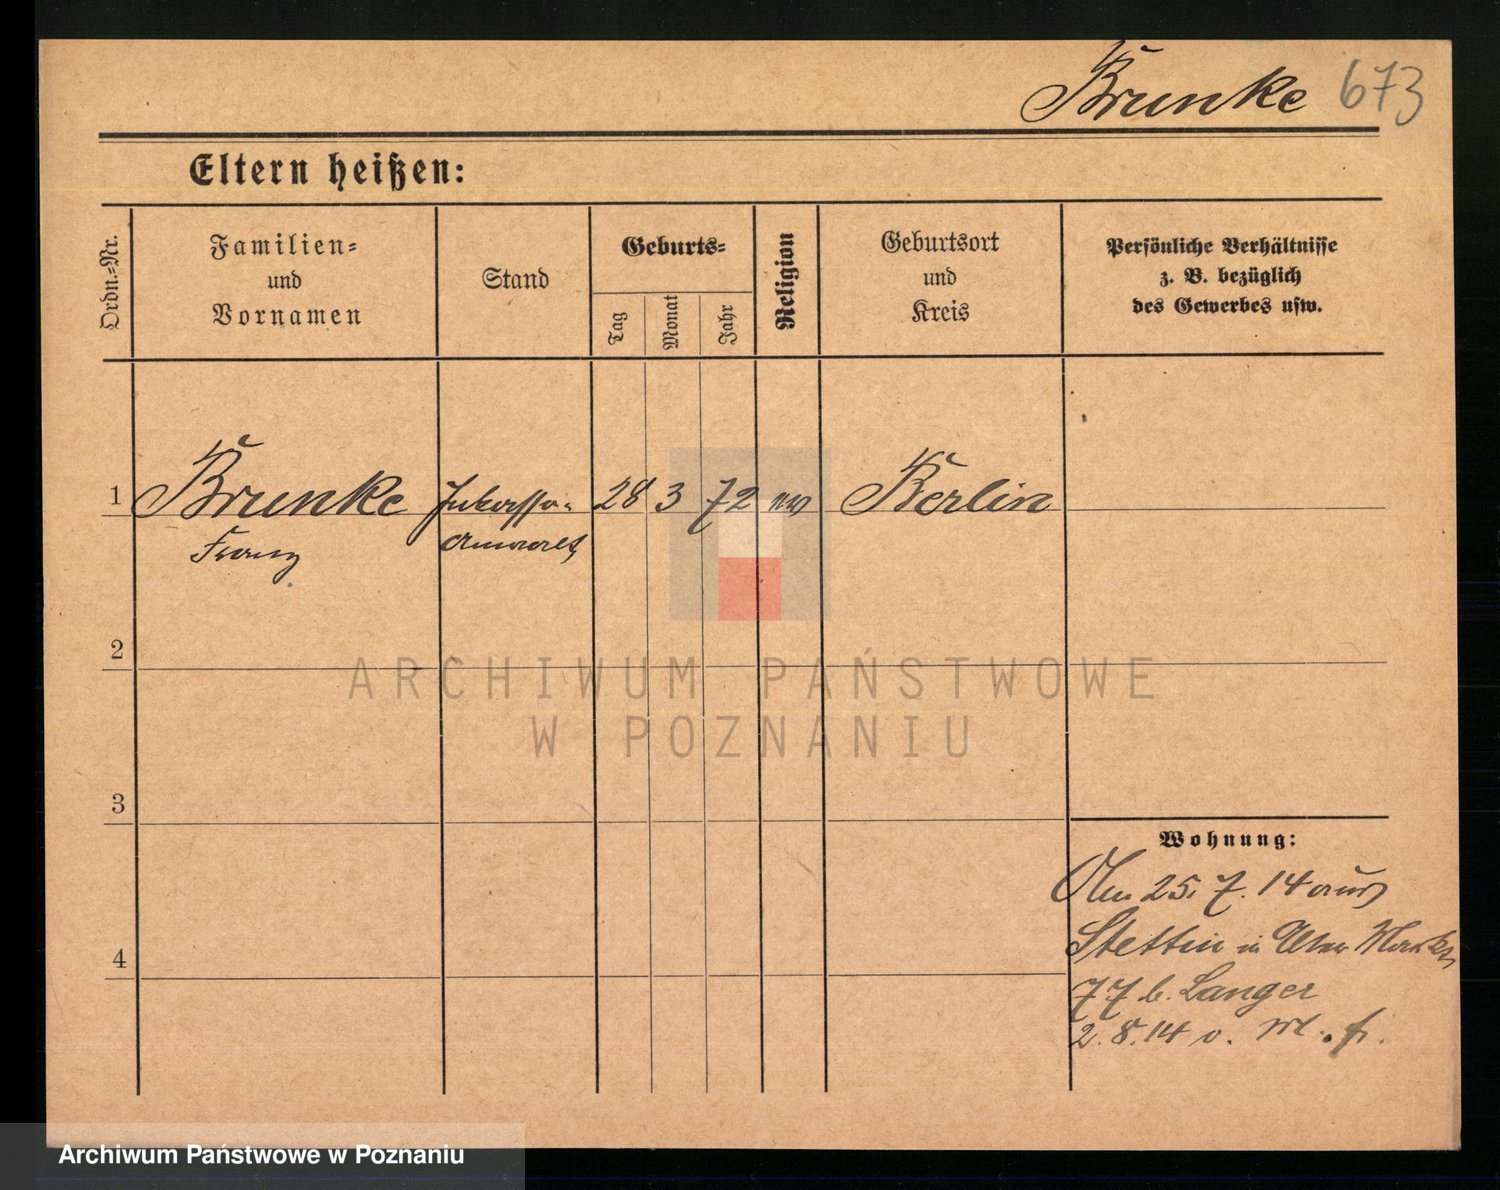 Brunke 673
Eltern heißen:
Ordn.=Nr.
Familien=
und
Vornamen
Stand
Geburts=
Tag
Monat
Jahr
Religion
Geburtsort
und
Kreis
Persönliche Verhältnisse
z. B. bezüglich
des Gewerbes usw.
1 Brunke Inkasso- 28 3 72 Berlin
Franz Anwalt
2
3
4
Wohnung:
Am 25. 7. 14 aus
Stettin in Alter Markt
77 b. Langer
2. 8. 14 v.
ARCHIWUM PAŃSTWOWE
W POZNANIU
Archiwum Państwowe w Poznaniu